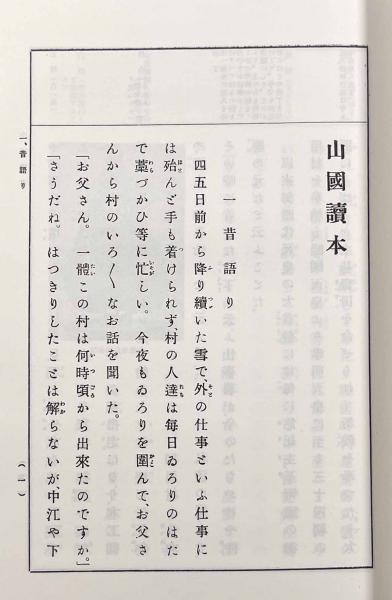 山國讀本
一 昔語り
四五日前から降り續いた雪で、外の仕事といふ仕事に
は殆んど手も着けられず、村の人達は毎日ゐろりのはた
で藁づかひ等に忙しい。今夜もゐろりを圍んで、お父さ
んから村のいろ〳〵なお話を聞いた。
「お父さん。一體この村は何時頃から出來たのですか。」
「さうだね。はつきりしたことは解らないが、中江や下
一、昔語り
(一)